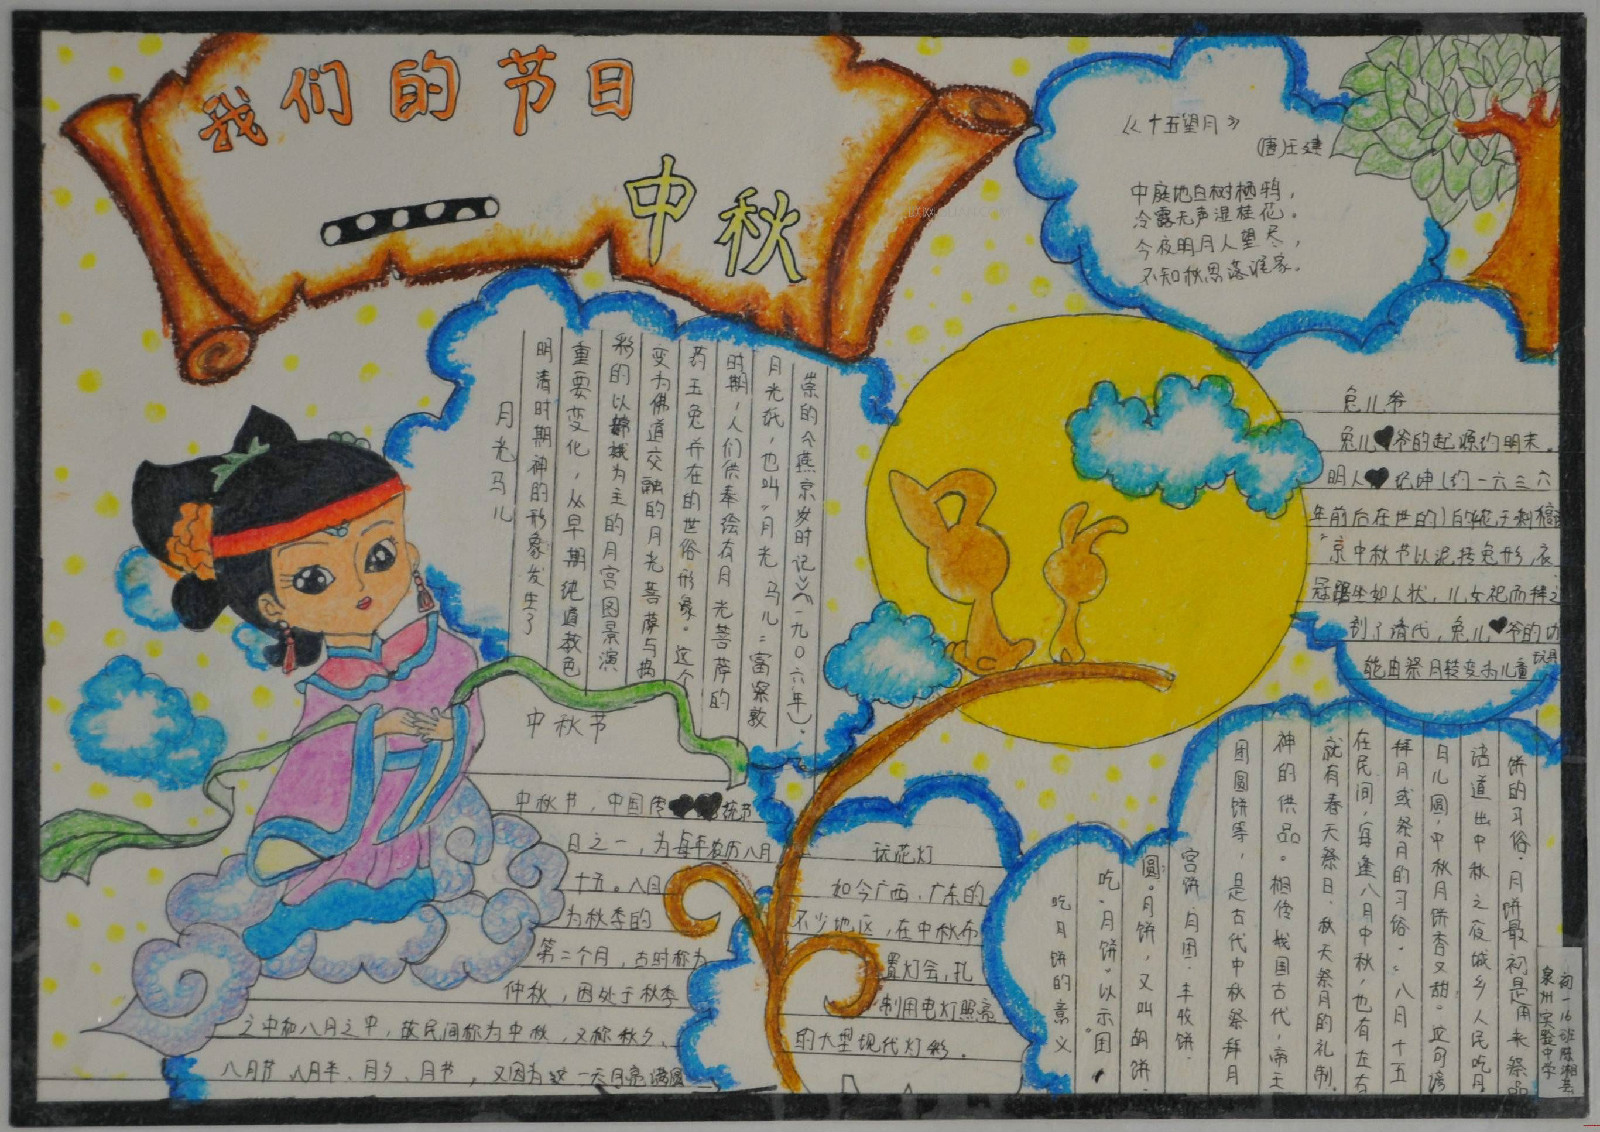 我们的节日
中秋
《十五望月》
(唐)王建
中庭地白树栖鸦，
冷露无声湿桂花。
今夜明月人望尽，
不知秋思落谁家。
月光马儿
明清时期神的形象发生了
重要变化，从早期纯道教色
彩的以嫦娥为主的月宫图景演
变为佛道交融的月光菩萨与捣
药玉兔并在的世俗形象。这个
时期，人们供奉绘有月光菩萨的
月光纸，也叫"月光马儿"富察敦
崇的《燕京岁时记》(一九〇六年)。
兔儿爷
兔儿爷的起源约明末。
明人纪坤(约一六三六
年前后在世的)的
京中秋节以泥抟兔形，衣
冠踞坐如人状，儿女祀而拜之
到了清代，兔儿爷的功
能由祭月转变为儿童玩具
中秋节
中秋节，中国传统节
日之一，为每年农历八月
十五。八月
为秋季的
第二个月，古时称为
仲秋，因处于秋季
之中和八月之中，故民间称为中秋，又称秋夕、
八月节、八月半、月夕、月节，又因为这一天月亮满圆
玩花灯
如今广西、广东的
不少地区，在中秋布
置灯会，扎
制用电灯照亮
的大型现代灯彩。
吃月饼的意义
吃"月饼"以示"团
圆"。月饼，又叫胡饼、
宫饼、月团、丰收饼、
团圆饼等，是古代中秋祭拜月
神的供品。相传我国古代，帝王
就有春天祭日、秋天祭月的礼制。
在民间，每逢八月中秋，也有左右
拜月或祭月的习俗。"八月十五
月儿圆，中秋月饼香又甜"。这句谚
语道出中秋之夜城乡人民吃月
饼的习俗。月饼最初是用来祭品
泉州实验中学
初一16班陈湘芸